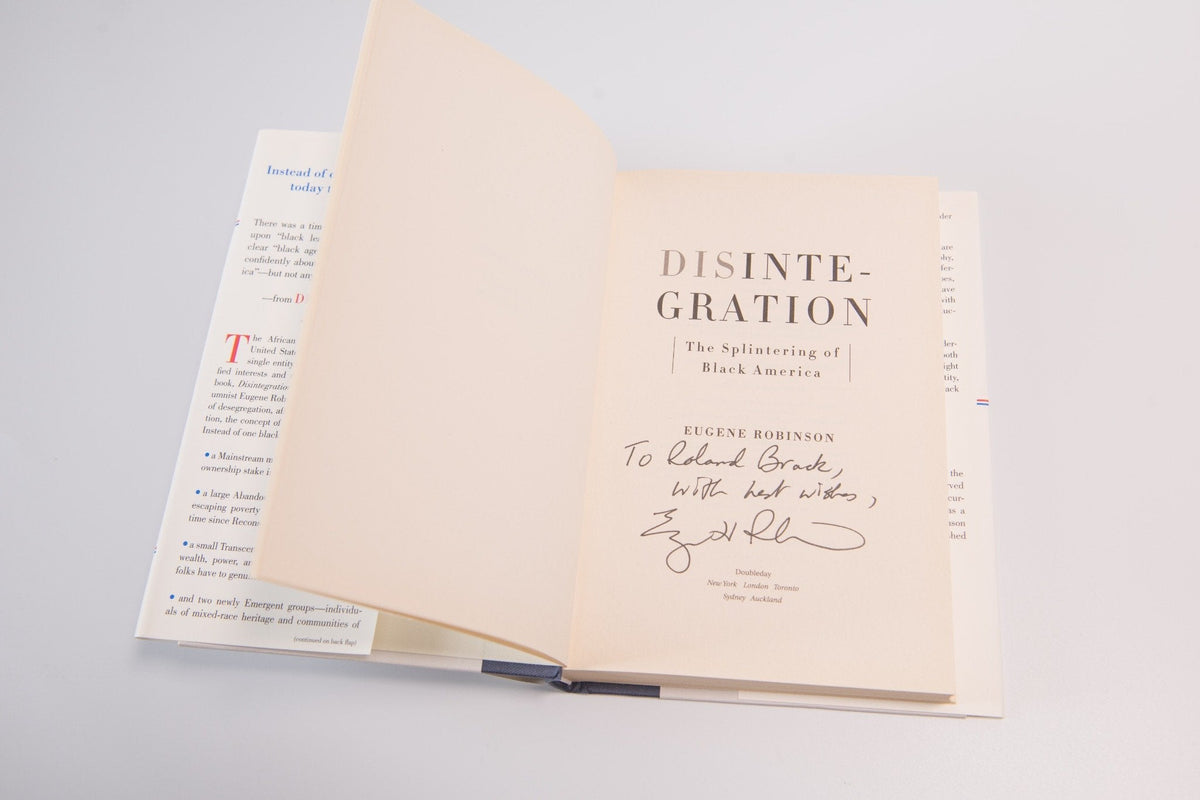 Instead of
today
There was a tim
upon “black
clear “black
confidently abou
ica”—but not
—from D
The African
United
single entity
fied interests and
book, Disintegration
umnist Eugene Rob
of desegregation, af
tion, the concept of
Instead of one black
• a Mainstream m
ownership stake
• a large Abando
escaping poverty
time since Recon
• a small Transcen
wealth, power,
folks have to
• and two newly Emergent groups—individu-
als of mixed-race heritage and communities of
(continued on back flap)
DISINTE-
GRATION
The Splintering of
Black America
EUGENE ROBINSON
To Roland Brack,
with best wishes,
Doubleday
New York London Toronto
Sydney Auckland
der
are
phy,
oes,
ave
with
uc-
der-
oth
ight
tity,
ack
the
rved
cur-
as a
nson
shed